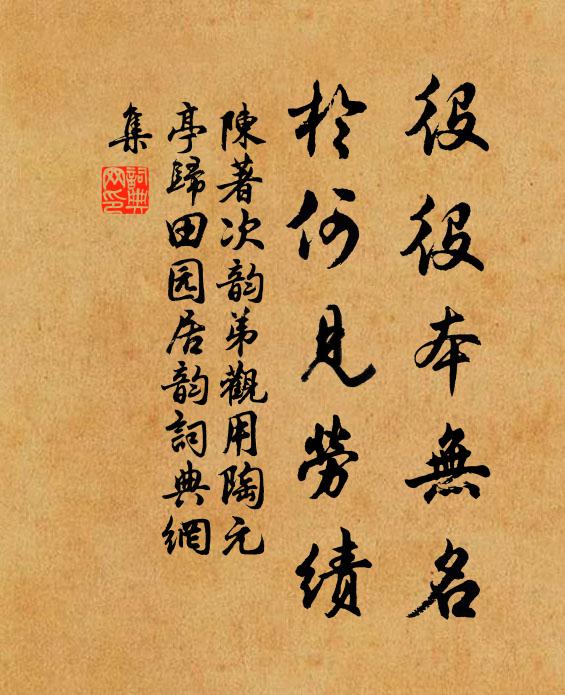 役役本無名
於何見勞績
陳著次韵弟觀用陶元
亭歸田园居韵詞典網
集
詞典
网印